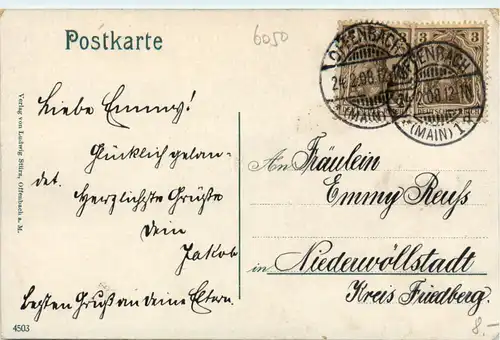 Postkarte
6050
OFFENBACH
(MAIN) 1
OFFENBACH
(MAIN) 1
3
Verlag von Ludwig Stilza, Offenbach a. M.
Liebe Emmy!
Glücklich gelan-
det. Herzlichste Grüße
Dein
Jakob
Besten Gruß an deine Eltern.
An Fräulein
Emmy Reuss
in Niederwöllstadt
Kreis Friedberg.
4503
8.-